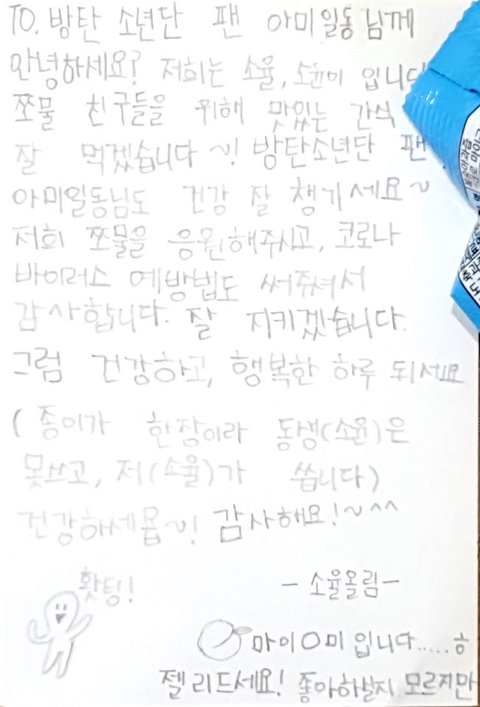 TO. 방탄 소년단 팬 아미일동님께
안녕하세요? 저희는 소율, 소윤이 입니다
쪼물 친구들을 위해 맛있는 간식
잘 먹겠습니다~! 방탄소년단 팬
아미일동님도 건강 잘 챙기세요~
저희 쪼물을 응원해주시고, 코로나
바이러스 예방법도 써주셔서
감사합니다. 잘 지키겠습니다.
그럼 건강하고, 행복한 하루 되세요
(종이가 한장이라 동생(소윤)은
못쓰고, 저(소율)가 씁니다)
건강하세욥~! 감사해요!~^^
홧팅!
- 소율올림 -
마이O미 입니다.....ㅎ
젤리드세요! 좋아하실지 모르지만